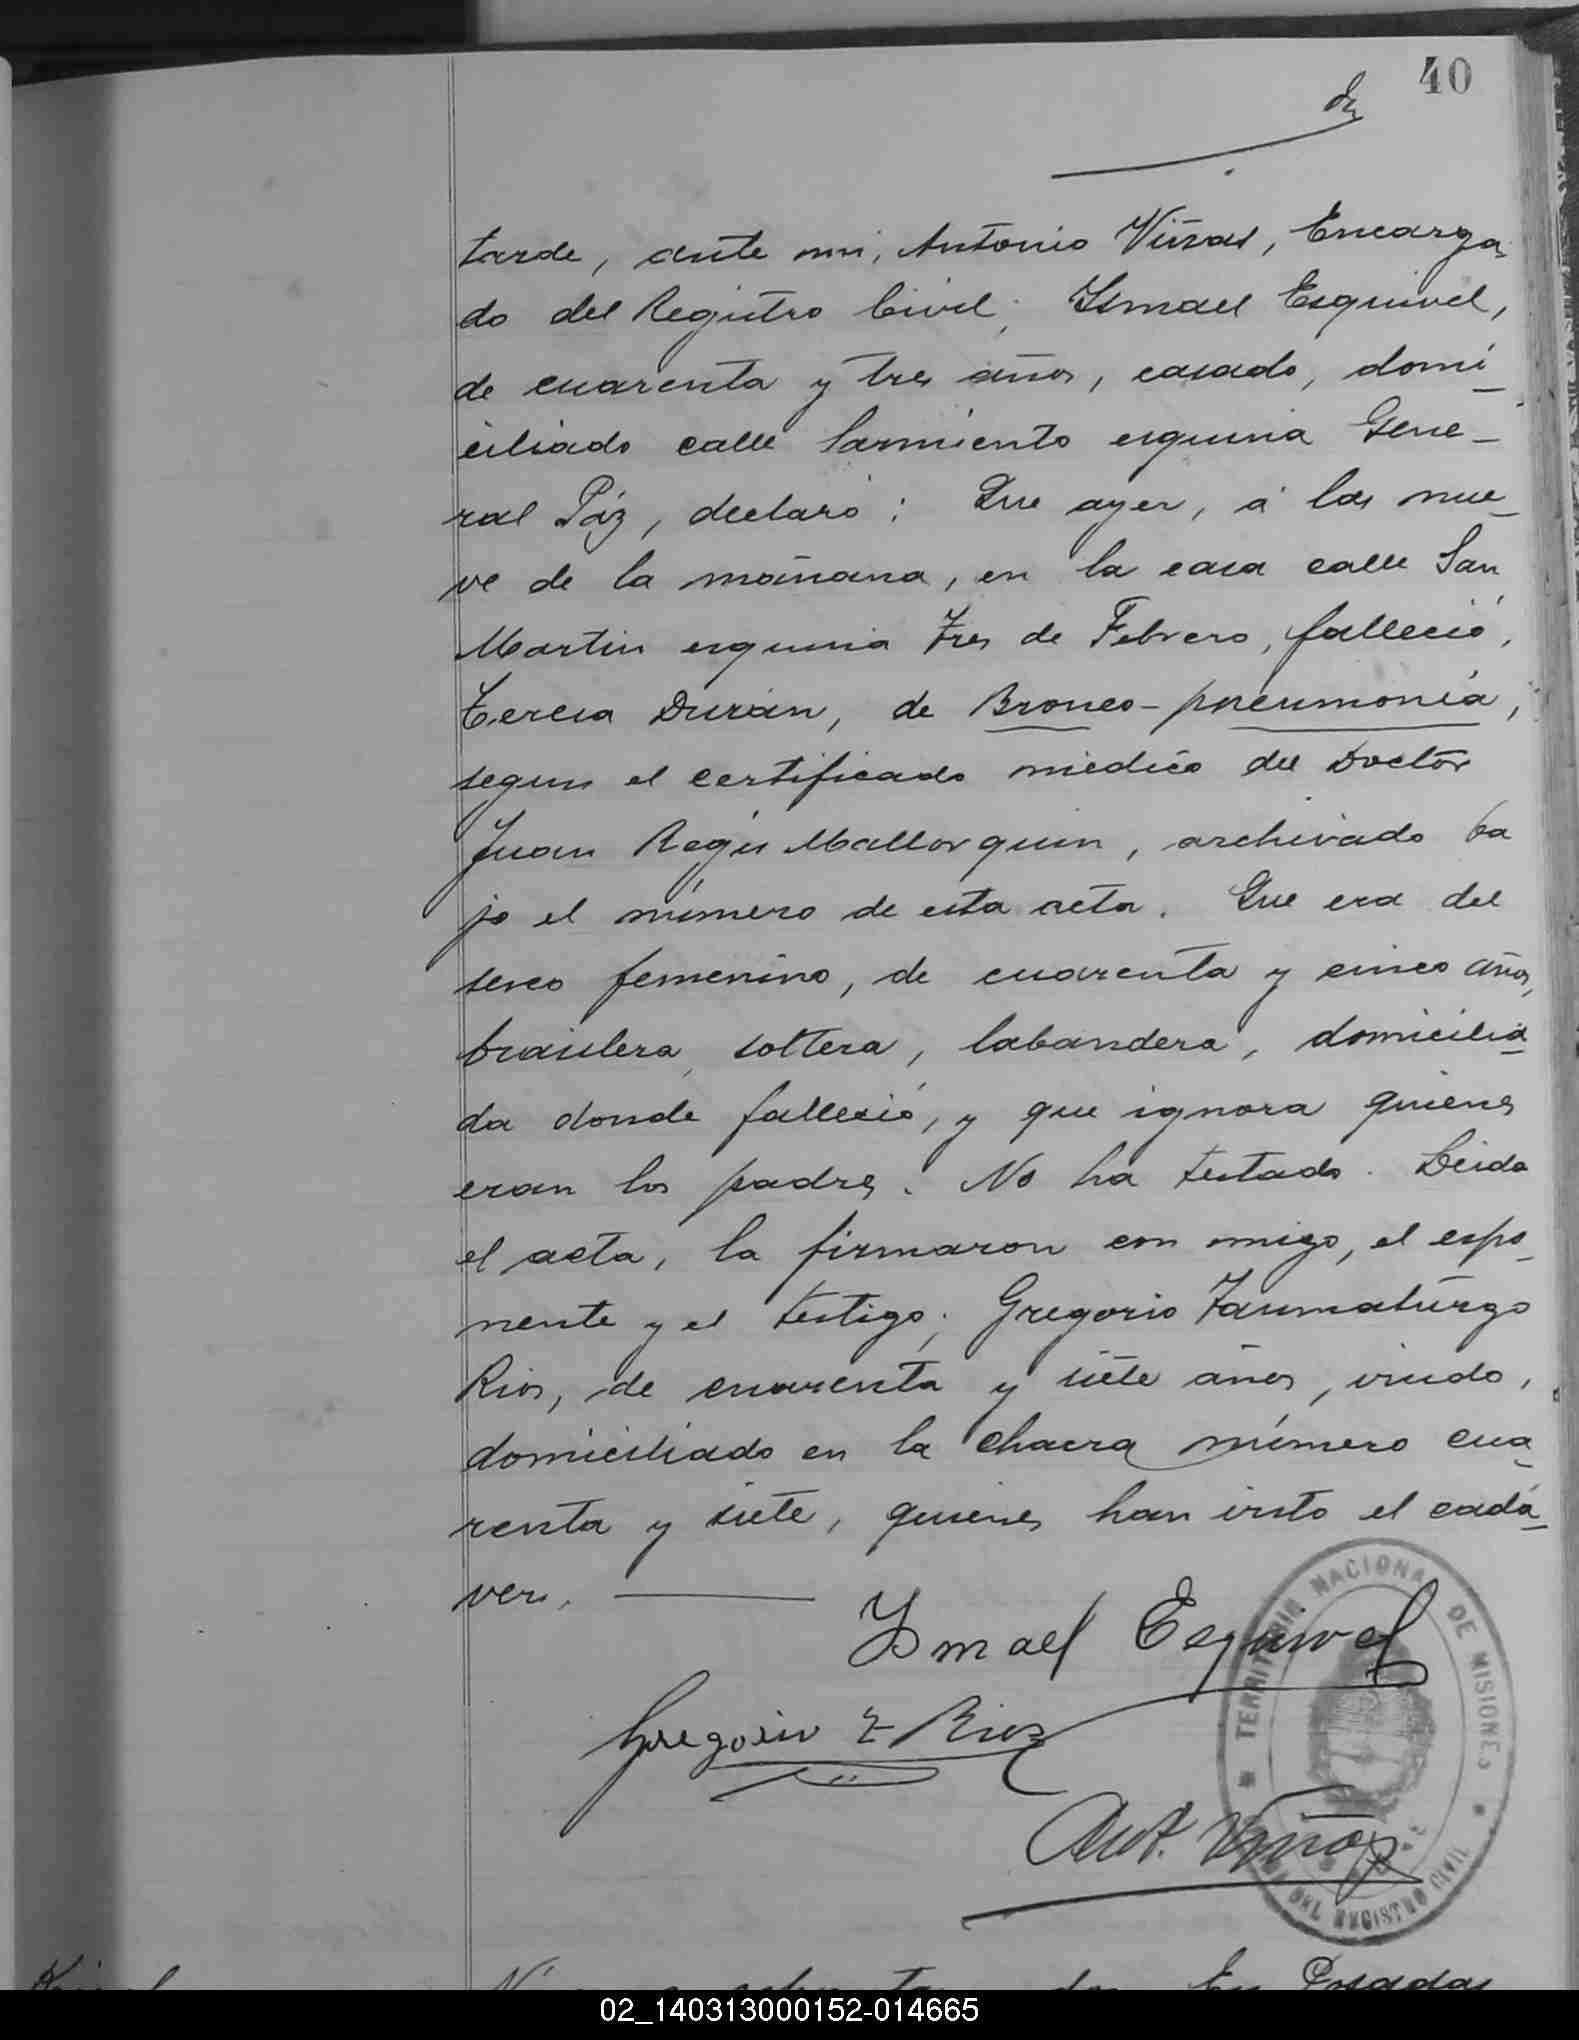 40
tarde, ante mi, Antonio Viñas, Encarga
do del Registro Civil; Ismael Esquivel,
de cuarenta y tres años, casado, domi_
ciliado calle Sarmiento esquina Gene_
ral Páz, declaró: Que ayer, á las nue_
ve de la mañana, en la casa calle San
Martin esquina Tres de Febrero, falleció,
Teresa Durán, de Bronco-pneumonía,
segun el certificado médico del Doctor
Juan Mallorquin, archivado ba
jo el número de esta acta. Que era del
sexo femenino, de cuarenta y cinco años,
brasilera, soltera, labandera, domicilia_
da donde falleció, y que ignora quienes
eran los padres. No ha testado. Leida
el acta, la firmaron con migo, el espo_
nente y el testigo; Gregorio Taumatúrgo
Rios, de cuarenta y siete años, viudo,
domiciliado en la chacra número cua_
renta y siete, quienes han visto el cadá_
ver.
Ismael Esquivel
Gregorio T Rios
Ant. Viñas
TERRITORIO NACIONAL DE MISIONES
DEL REGISTRO CIVIL
En Posadas
02_140313000152-014665